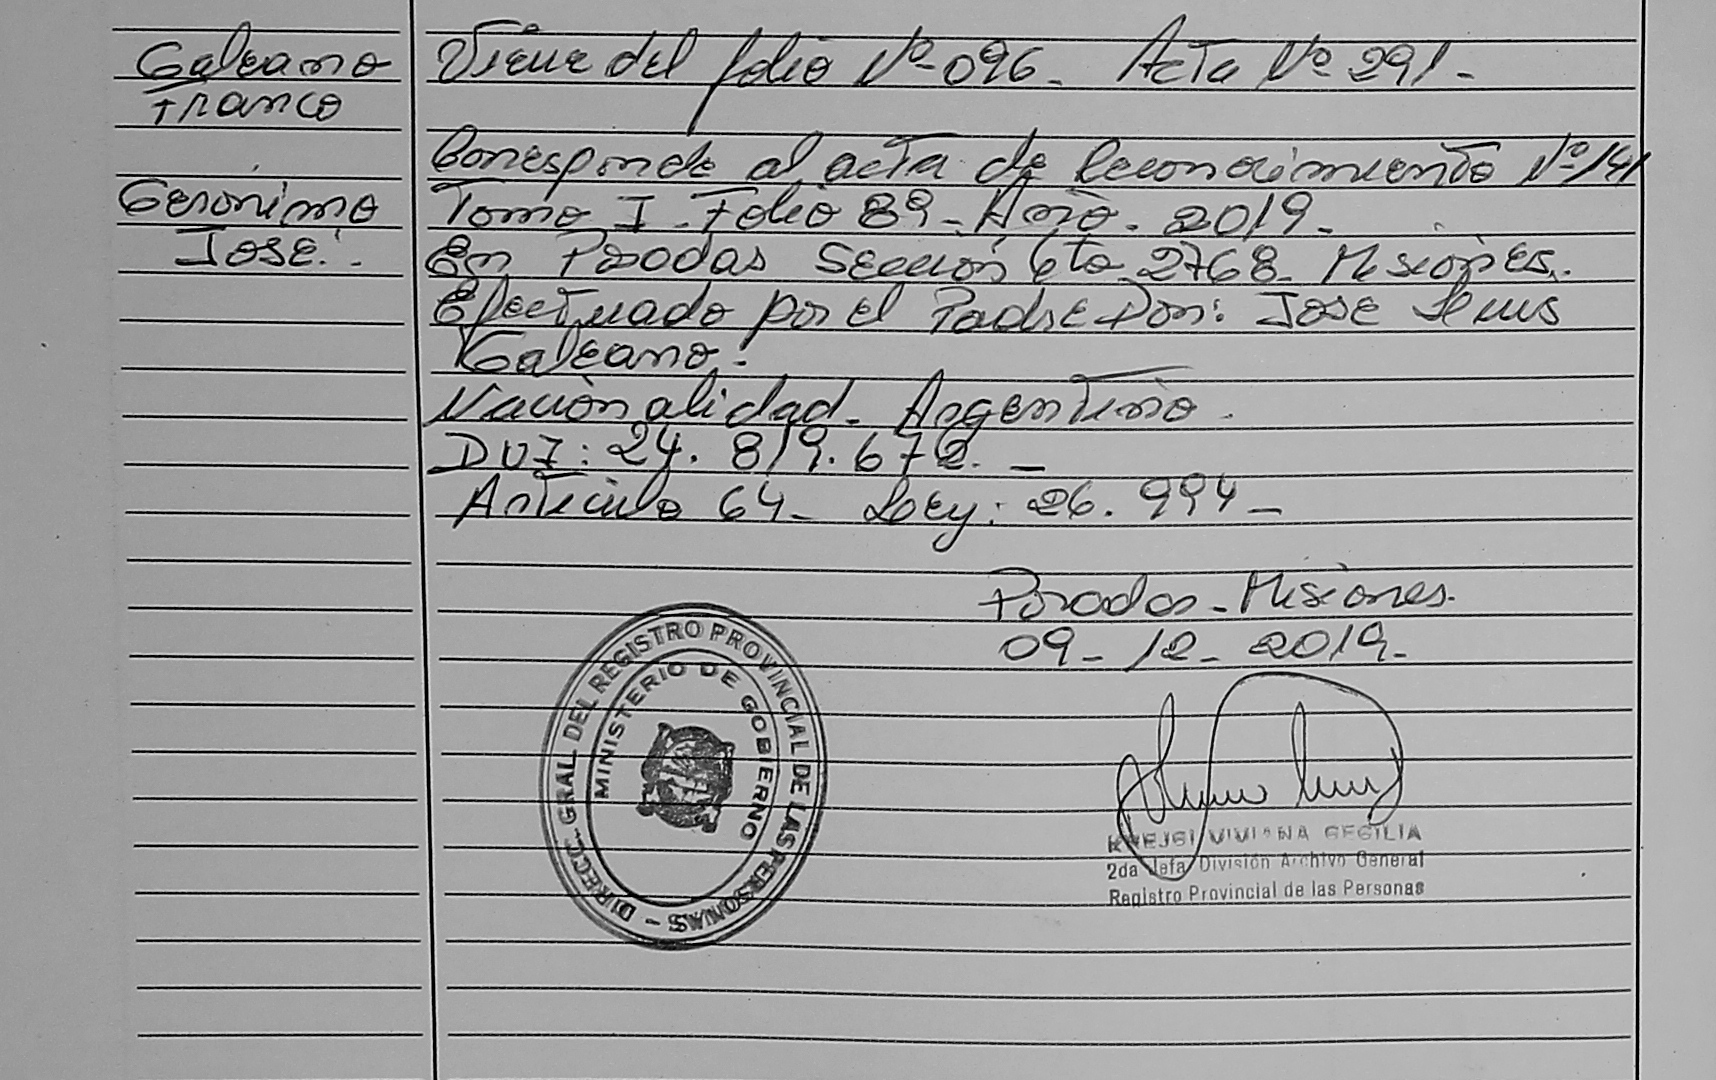 Galeano
Franco
Geronimo
José.
Viene del folio Nº 096. Acta Nº 291.
Corresponde al acta de Reconocimiento Nº 141
Tomo I. Folio 89 - Año. 2019.
En Posadas Sección 6ta 2768 Misiones.
Efectuado por el Padre Don: Jose Luis
Galeano.
Nacionalidad - Argentino.
DNI: 24. 819. 672. -
Articulo 64 - Ley: 26. 994 -
Posadas - Misiones.
09 - 12 - 2019.
DIRECC. GRAL. DEL REGISTRO PROVINCIAL DE LAS PERSONAS -
MINISTERIO DE GOBIERNO
VIVIANA CECILIA
2da Jefa División Archivo General
Registro Provincial de las Personas